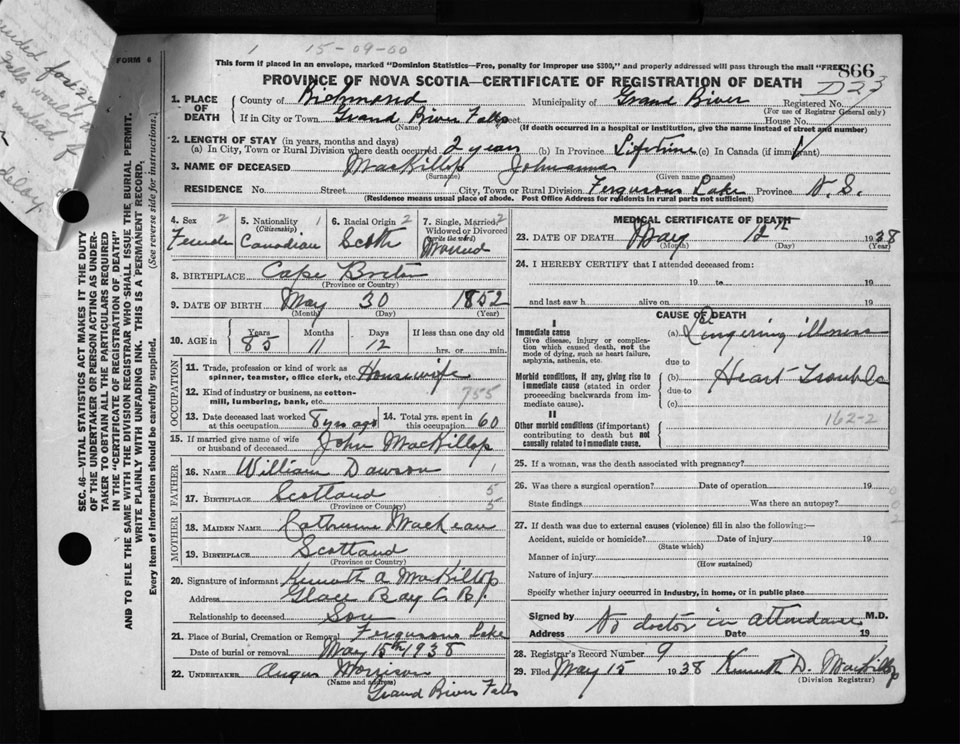 1 15-09-00
This form if placed in an envelope, marked "Dominion Statistics—Free, penalty for improper use $300," and properly addressed will pass through the mail "FREE"
FORM 6
866
PROVINCE OF NOVA SCOTIA—CERTIFICATE OF REGISTRATION OF DEATH
D23
1. PLACE OF DEATH
County of Richmond Municipality of Grand River Registered No.
(For use of Registrar General only)
If in City or Town Grand River Falls Street House No.
(Name) (If death occurred in a hospital or institution, give the name instead of street and number)
2. LENGTH OF STAY (in years, months and days)
(a) In City, Town or Rural Division where death occurred 2 years (b) In Province Lifetime (c) In Canada (if immigrant)
3. NAME OF DECEASED MacKillop Johanna
(Surname) (Given name or names)
RESIDENCE No. Street City, Town or Rural Division Fergusons Lake Province N. S.
(Residence means usual place of abode. Post Office Address for residents in rural parts not sufficient)
4. Sex 2 Female
5. Nationality (Citizenship) 1 Canadian
6. Racial Origin 2 Scotch
7. Single, Married, Widowed or Divorced (write the word) 2
8. BIRTHPLACE Cape Breton
(Province or Country)
9. DATE OF BIRTH May 30 1852
(Month) (Day) (Year)
10. AGE in Years 85 Months 11 Days 12 If less than one day old
hrs. or min.
OCCUPATION
11. Trade, profession or kind of work as spinner, teamster, office clerk, etc. Housewife
12. Kind of industry or business, as cotton-mill, lumbering, bank, etc. 755
13. Date deceased last worked at this occupation 8 yrs ago
14. Total yrs. spent in this occupation 60
15. If married give name of wife or husband of deceased John MacKillop
FATHER
16. NAME William Dawson 1
17. BIRTHPLACE Scotland 5
(Province or Country) 5
MOTHER
18. MAIDEN NAME Catherine MacKean
19. BIRTHPLACE Scotland
(Province or Country)
20. Signature of informant Kenneth A MacKillop
Address Glace Bay C. B.
Relationship to deceased Son
21. Place of Burial, Cremation or Removal Fergusons Lake
Date of burial or removal May 15th 1938
22. UNDERTAKER Angus Morrison
(Name and address)
Grand River Falls
MEDICAL CERTIFICATE OF DEATH
23. DATE OF DEATH May 12th 1938
(Month) (Day) (Year)
24. I HEREBY CERTIFY that I attended deceased from:
19 to 19
and last saw h alive on 19
CAUSE OF DEATH
I
Immediate cause
Give disease, injury or complication which caused death, not the mode of dying, such as heart failure, asphyxia, asthenia, etc.
(a) Lingering illness
due to
Morbid conditions, if any, giving rise to immediate cause (stated in order proceeding backwards from immediate cause).
(b) Heart Trouble
due to
(c)
II
162-2
Other morbid conditions (if important) contributing to death but not causally related to immediate cause.
25. If a woman, was the death associated with pregnancy?
26. Was there a surgical operation? Date of operation 19
State findings Was there an autopsy?
27. If death was due to external causes (violence) fill in also the following:—
Accident, suicide or homicide? Date of injury 19
(State which)
Manner of injury
(How sustained)
Nature of injury
Specify whether injury occurred in industry, in home, or in public place
Signed by No doctor in attendance M.D.
Address Date 19
28. Registrar's Record Number 9
29. Filed May 15 1938 Kenneth D. MacKillop
(Division Registrar)
SEC. 46—VITAL STATISTICS ACT MAKES IT THE DUTY
OF THE UNDERTAKER OR PERSON ACTING AS UNDER-
TAKER TO OBTAIN ALL THE PARTICULARS REQUIRED
IN THE "CERTIFICATE OF REGISTRATION OF DEATH"
AND TO FILE THE SAME WITH THE DIVISION REGISTRAR WHO SHALL ISSUE THE BURIAL PERMIT.
WRITE PLAINLY WITH UNFADING INK. THIS IS A PERMANENT RECORD.
Every item of information should be carefully supplied. (See reverse side for instructions.)
Falls would
delay